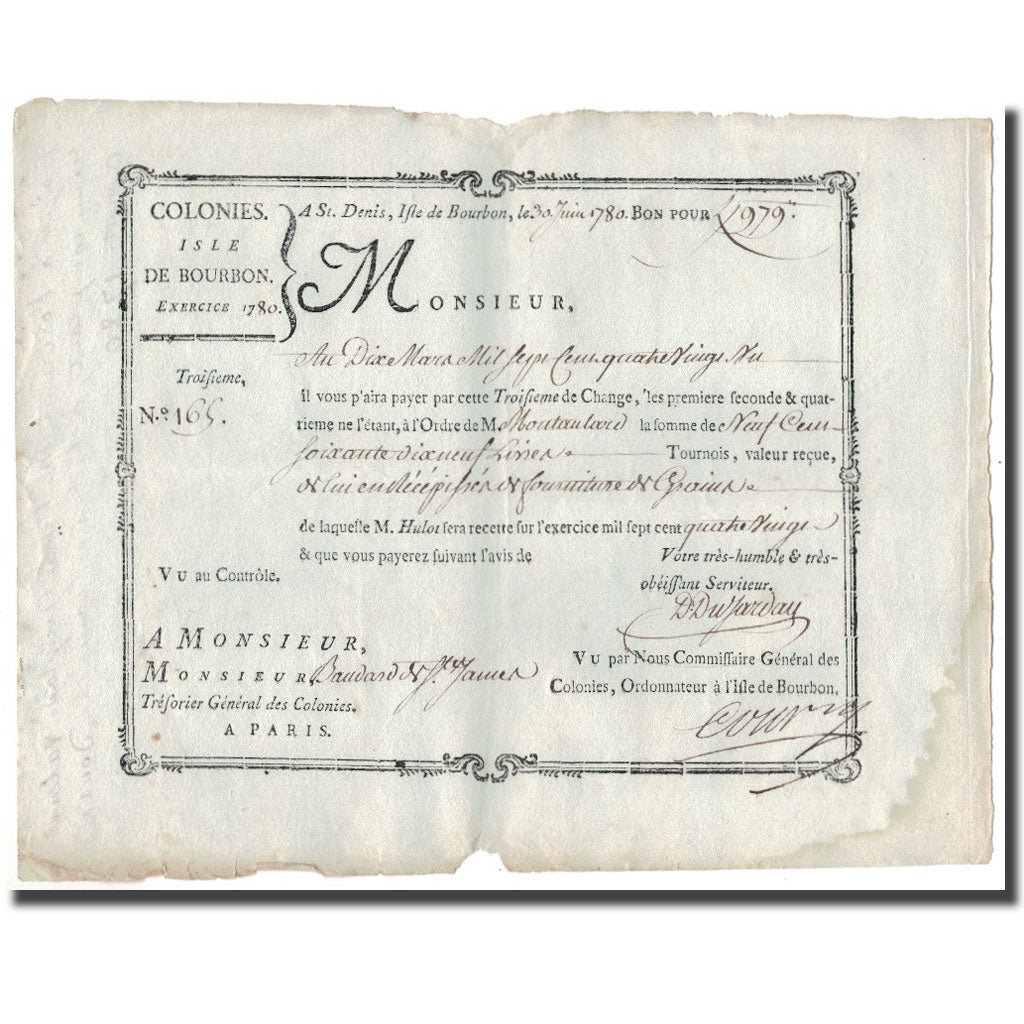 COLONIES.
ISLE
DE BOURBON.
EXERCICE 1780.
A St. Denis, Isle de Bourbon, le 30 Juin 1780. BON POUR L 979"
MONSIEUR,
Au Dix Mars Mil Sept Cent quatre Vingt Un
Troisieme,
N.º 165.
il vous p'aira payer par cette Troisieme de Change, les premiere seconde & quat-
rieme ne l'étant, à l'Ordre de M. Montaulard la somme de Neuf Cent
Soixante dixneuf Livres Tournois, valeur reçue,
de lui en Récépissés de fourniture de Grains
de laquelle M. Hulot sera recette sur l'exercice mil sept cent quatre Vingt
& que vous payerez suivant l'avis de
Votre très-humble & très-
obéissant Serviteur.
VU au Contrôle.
A MONSIEUR,
MONSIEUR, Baudard de Ste. James
Trésorier Général des Colonies.
A PARIS.
VU par Nous Commissaire Général des
Colonies, Ordonnateur à l'Isle de Bourbon.